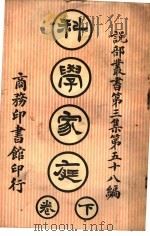 說部叢書第三集第五十八編
科學家庭
卷下
商務印書館印行